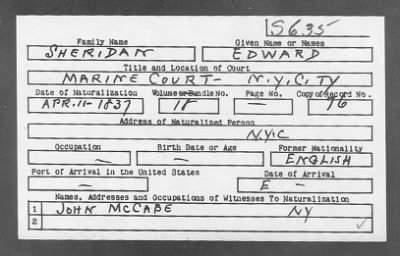 S635
Family Name Given Name or Names
SHERIDAN EDWARD
Title and Location of Court
MARINE COURT - N.Y.C ITY
Date of Naturalization Volume or Bundle No. Page No. Copy of Record No.
APR.11-1837 18 — 96
Address of Naturalized Person
N.Y.C
Occupation Birth Date or Age Former Nationality
— — ENGLISH
Port of Arrival in the United States Date of Arrival
— E —
Names, Addresses and Occupations of Witnesses To Naturalization
1 JOHN McCABE NY
2